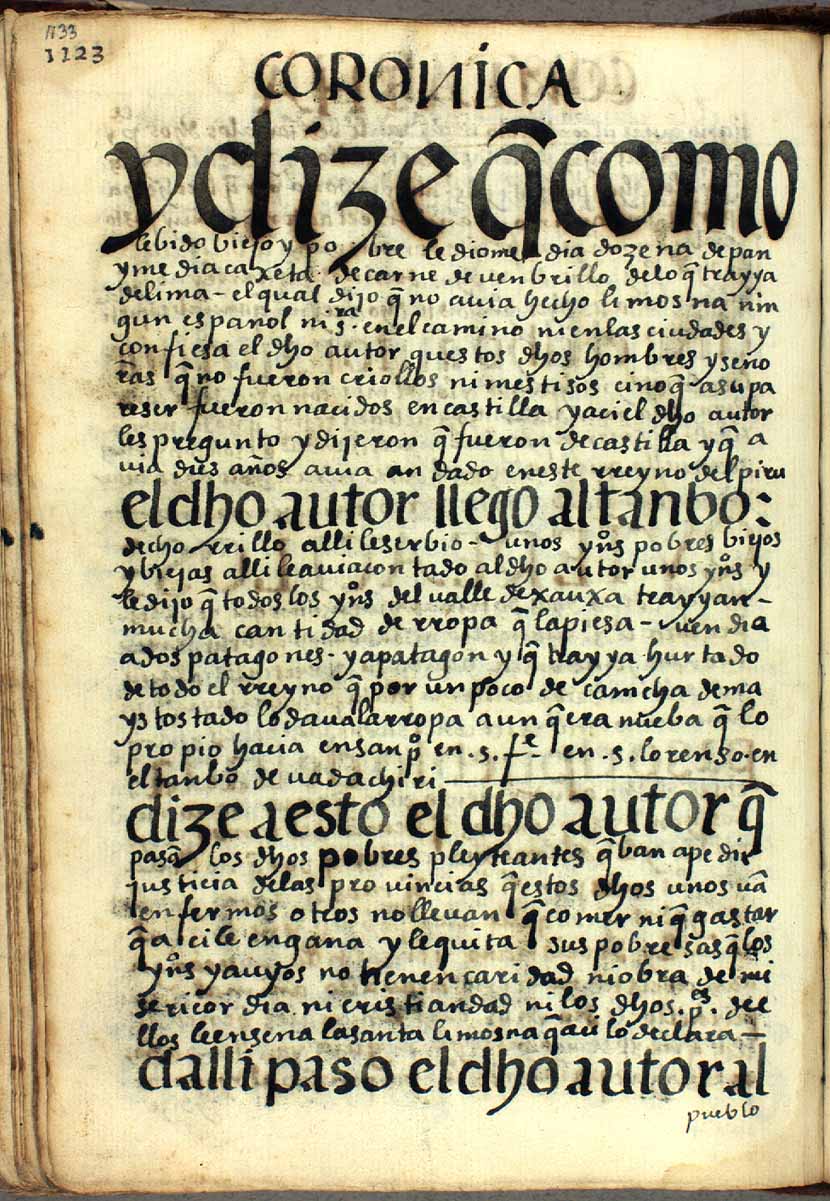 1133
1123
CORONICA
y dize q̃ como
le bido biejo y po bre le dio me dia dozena de pan
y me dia caxeta de carne de venbrillo de lo q̃ trayya
de lima - el qual dijo q̃ no avia hecho limosna nin
gun español ni s.ra en el camino ni en las ciudades y
confiesa el dho autor questos dhos hombres y seño
ras q̃ no fueron criollos ni mestisos cino q̃ a su pa
reser fueron nacidos en castilla y aci el dho autor
les pregunto y dijeron q̃ fueron de castilla y q̃ a
via dies años avia an dado en este rreyno del piru
el dho autor llego al tanbo:
de cho rrillo alli le serbio - unos yns pobres biejos
y biejas alli le avia con tado al dho autor unos yns y
le dijo q̃ todos los yns del valle de xauxa trayyan -
mucha can tidad de rropa q̃ la piesa - uen dia
a dos patagones - y a patagon y q̃ trayya hur tado
de todo el rreyno q̃ por un poco de camcha de ma
ys tos tado lo dava la rropa aun q̃ era nueba q̃ lo
propio hacia en san po en .s. fe - en .s. lorenso - en
el tanbo de uadachiri
dize a esto el dho autor q̃
pasã los dhos pobres pleyteantes q̃ ban a pedir
justicia de las pro vincias q̃ estos dhos unos vã
enfermos otros no lleuan q̃ comer ni q̃ gastar
q̃ a ci le engana y le quita sus pobresas q̃ los
yns yauyos no tienen caridad ni obra de mi
sericor dia ni cris tiandad ni los dhos .pes. de e
llos le ensena la santa limosna q̃ aci lo declara -
dalli paso el dho autor al
pueblo